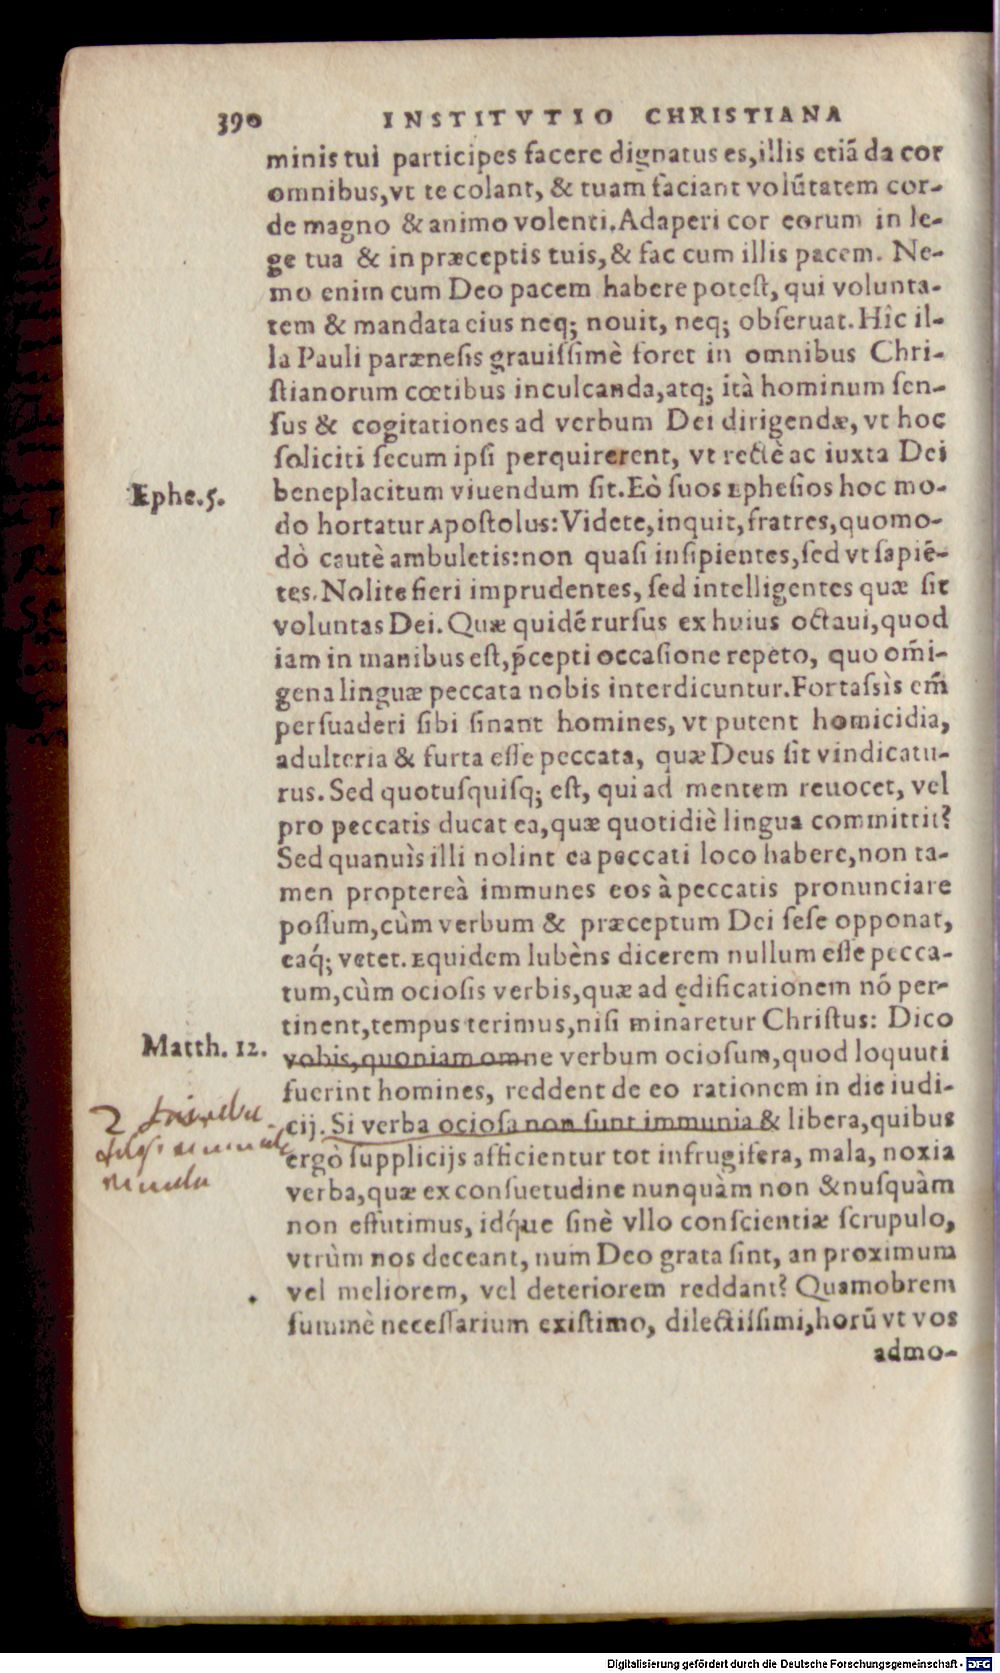 390 INSTITVTIO CHRISTIANA
minis tui participes facere dignatus es, illis etiã da cor
omnibus, vt te colant, & tuam faciant volũtatem cor-
de magno & animo volenti. Adaperi cor eorum in le-
ge tua & in præceptis tuis, & fac cum illis pacem. Ne-
mo enim cum Deo pacem habere potest, qui volunta-
tem & mandata eius neq; nouit, neq; obseruat. Hîc il-
la Pauli parænesis grauissimè foret in omnibus Chri-
stianorum cœtibus inculcanda, atq; ità hominum sen-
sus & cogitationes ad verbum Dei dirigendæ, vt hoc
soliciti secum ipsi perquirerent, vt rectè ac iuxta Dei
Ephe. 5.
beneplacitum viuendum sit. Eò suos Ephesios hoc mo-
do hortatur Apostolus: Videte, inquit, fratres, quomo-
dò cautè ambuletis: non quasi insipientes, sed vt sapiẽ-
tes. Nolite fieri imprudentes, sed intelligentes quæ sit
voluntas Dei. Quæ quidẽ rursus ex huius octaui, quod
iam in manibus est, p̃cepti occasione repeto, quo om̃i-
gena linguæ peccata nobis interdicuntur. Fortassìs em̃
persuaderi sibi sinant homines, vt putent homicidia,
adulteria & furta esse peccata, quæ Deus sit vindicatu-
rus. Sed quotusquisq; est, qui ad mentem reuocet, vel
pro peccatis ducat ea, quæ quotidiè lingua committit?
Sed quanuìs illi nolint ea peccati loco habere, non ta-
men proptereà immunes eos à peccatis pronunciare
possum, cùm verbum & præceptum Dei sese opponat,
eaq́; vetet. Equidem lubèns dicerem nullum esse pecca-
tum, cùm ociosis verbis, quæ ad ędificationem nõ per-
tinent, tempus terimus, nisi minaretur Christus: Dico
Matth. 12.
vobis, quoniam omne verbum ociosum, quod loquuti
fuerint homines, reddent de eo rationem in die iudi-
cij. Si verba ociosa non sunt immunia & libera, quibus
ergò supplicijs afficientur tot infrugifera, mala, noxia
verba, quæ ex consuetudine nunquàm non & nusquàm
non effutimus, idq́ue sinè vllo conscientiæ scrupulo,
vtrùm nos deceant, num Deo grata sint, an proximum
vel meliorem, vel deteriorem reddant? Quamobrem
summè necessarium existimo, dilectissimi, horũ vt vos
admo-
Digitalisierung gefördert durch die Deutsche Forschungsgemeinschaft - DFG